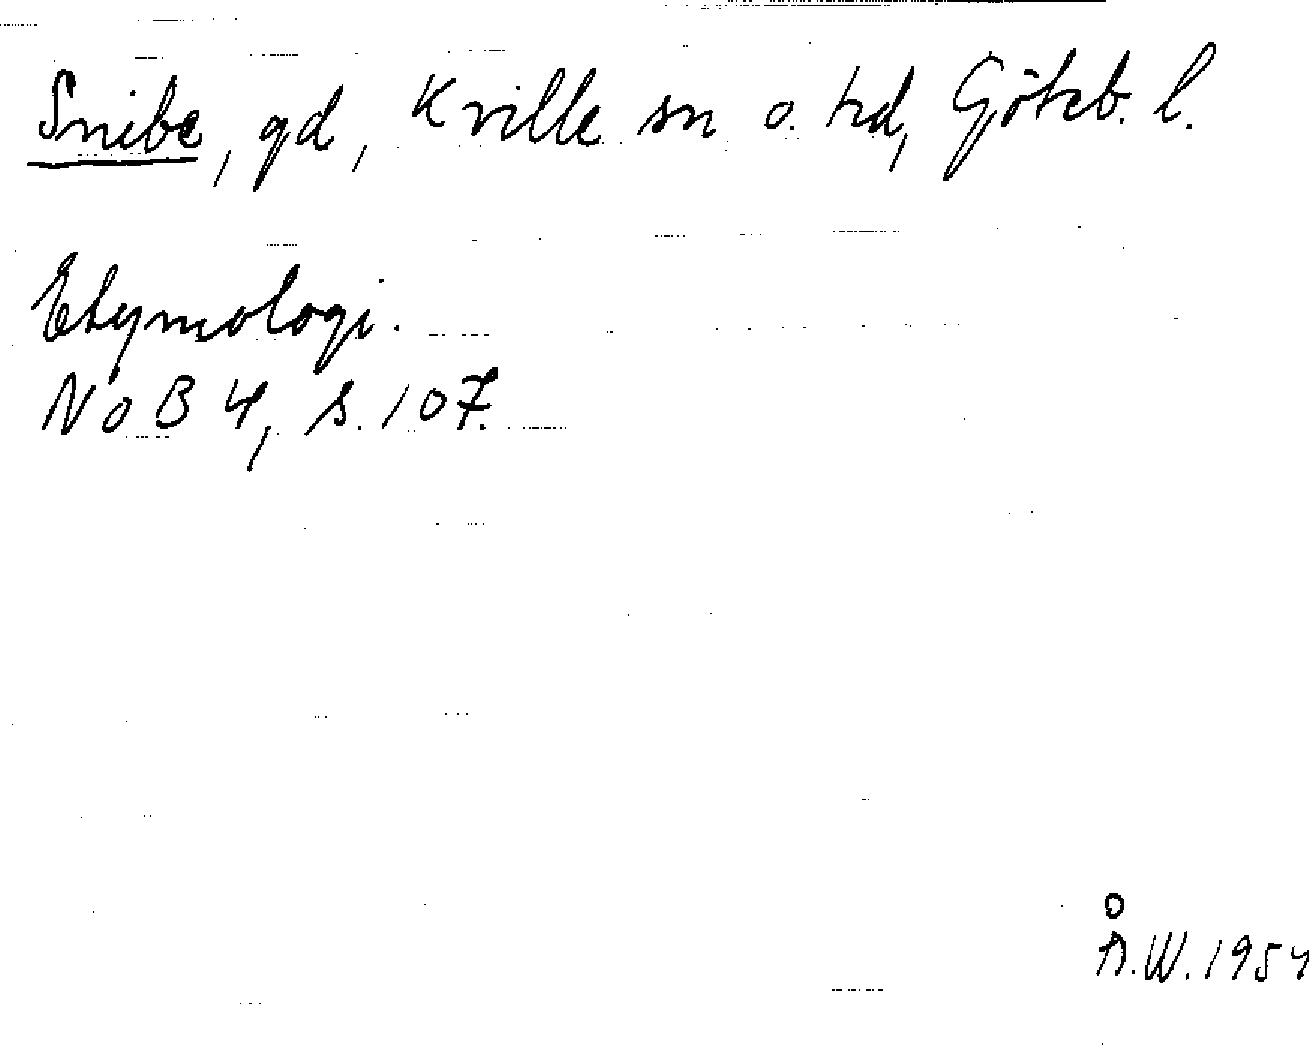 Snibe, gd, Kville sn o. hd, Göteb. l.
Etymologi.
NoB 4, s. 107.
Å.W. 1954